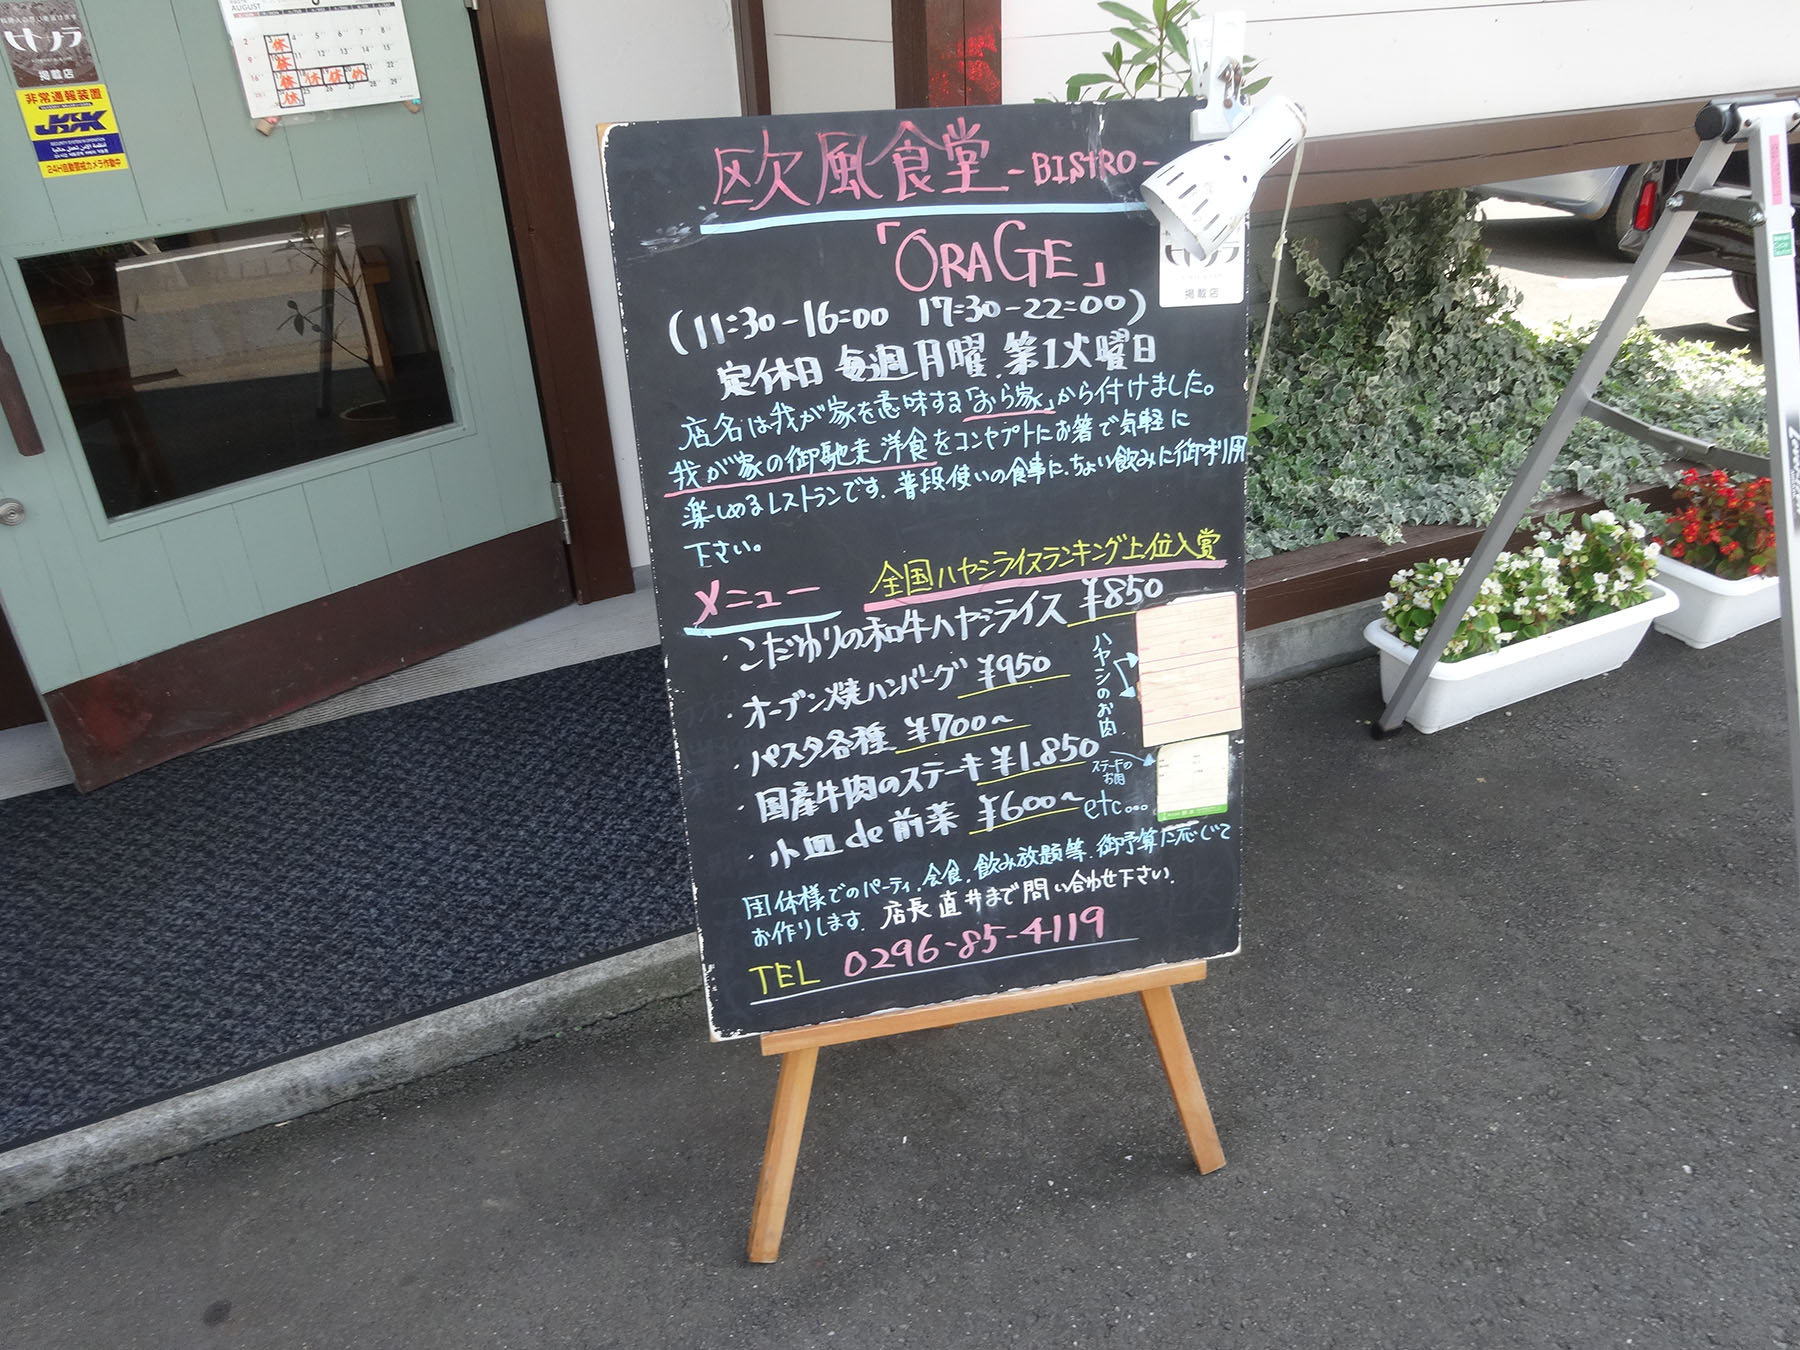 ヒトサラ
掲載店
非常通報装置
24H自動監視カメラ作動中
AUGUST
休
休
休 休 休 休
休
欧風食堂 -BISTRO-
「ORAGE」
(11:30-16:00 17:30-22:00)
定休日 毎週月曜.第1火曜日
店名は我が家を意味する「おら家」から付けました。
我が家の御馳走洋食をコンセプトにお箸で気軽に
楽しめるレストランです.普段使いの食事に.ちょい飲みに御利用
下さい。
メニュー 全国ハヤシライスランキング上位入賞
・こだわりの和牛ハヤシライス ¥850
・オーブン焼ハンバーグ ¥950
・パスタ各種 ¥700〜
・国産牛肉のステーキ ¥1.850
・小皿de前菜 ¥600〜 etc...
ハヤシのお肉
ステーキの
お肉
団体様でのパーティ.会食.飲み放題等.御予算に応じて
お作りします.店長 直井まで問い合わせ下さい.
TEL 0296-85-4119
ヒトサラ
掲載店